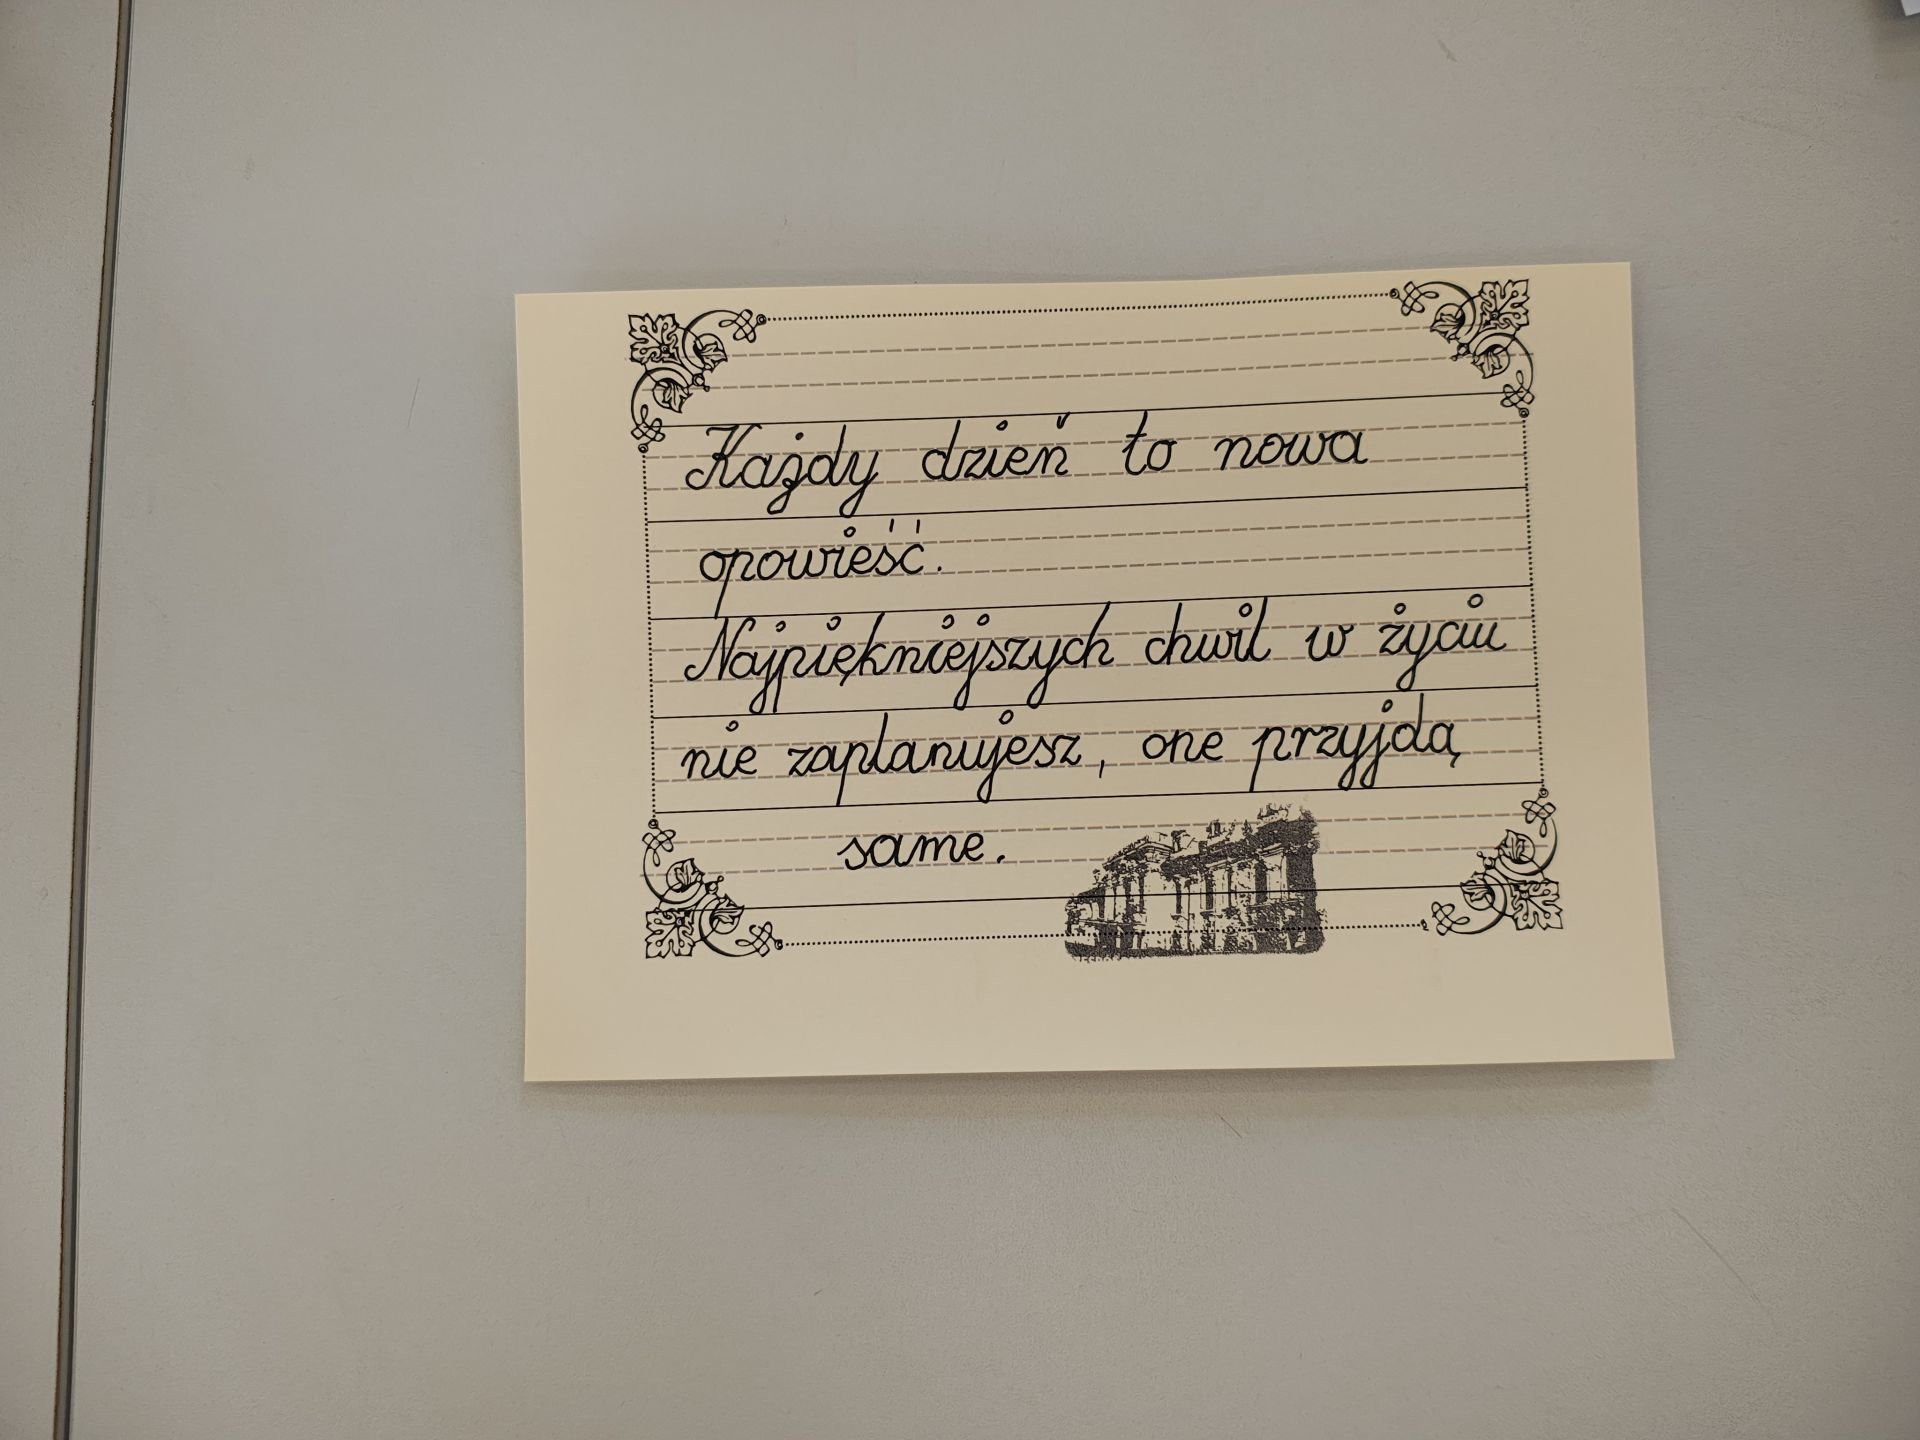 Każdy dzień to nowa
opowieść.
Najpiękniejszych chwil w życiu
nie zaplanujesz, one przyjdą
same.